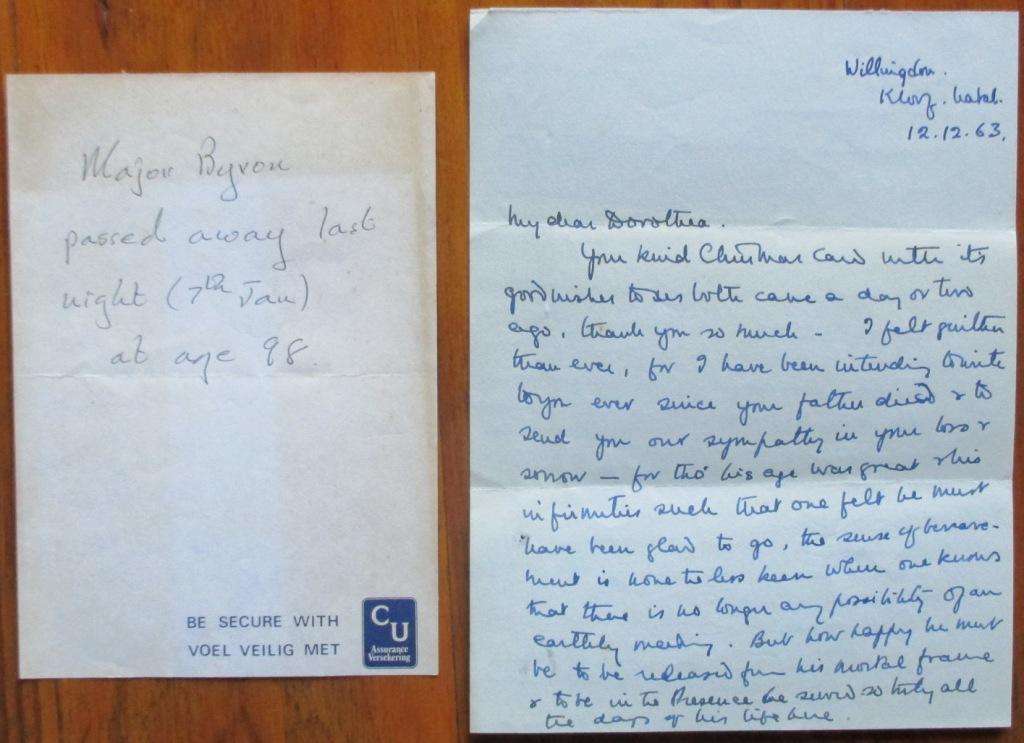 Major Byron
passed away last
night (7th Jan)
at age 98.
BE SECURE WITH
VOEL VEILIG MET
CU
Assurance
Versekering
Willingdon.
Kloof. Natal.
12.12.63.
My dear Dorothea.
Your kind Christmas Card with its
good wishes to us both came a day or two
ago, thank you so much - I felt guiltier
than ever, for I have been intending to write
to you ever since your father died & to
send you our sympathy in your loss &
sorrow — for tho' his age was great & his
infirmities such that one felt he must
have been glad to go, the sense of bereave-
ment is none the less keen when one knows
that there is no longer any possibility of an
earthly meeting. But how happy he must
be to be released from his mortal frame
& to be in the Presence he served so truly all
the days of his life here.